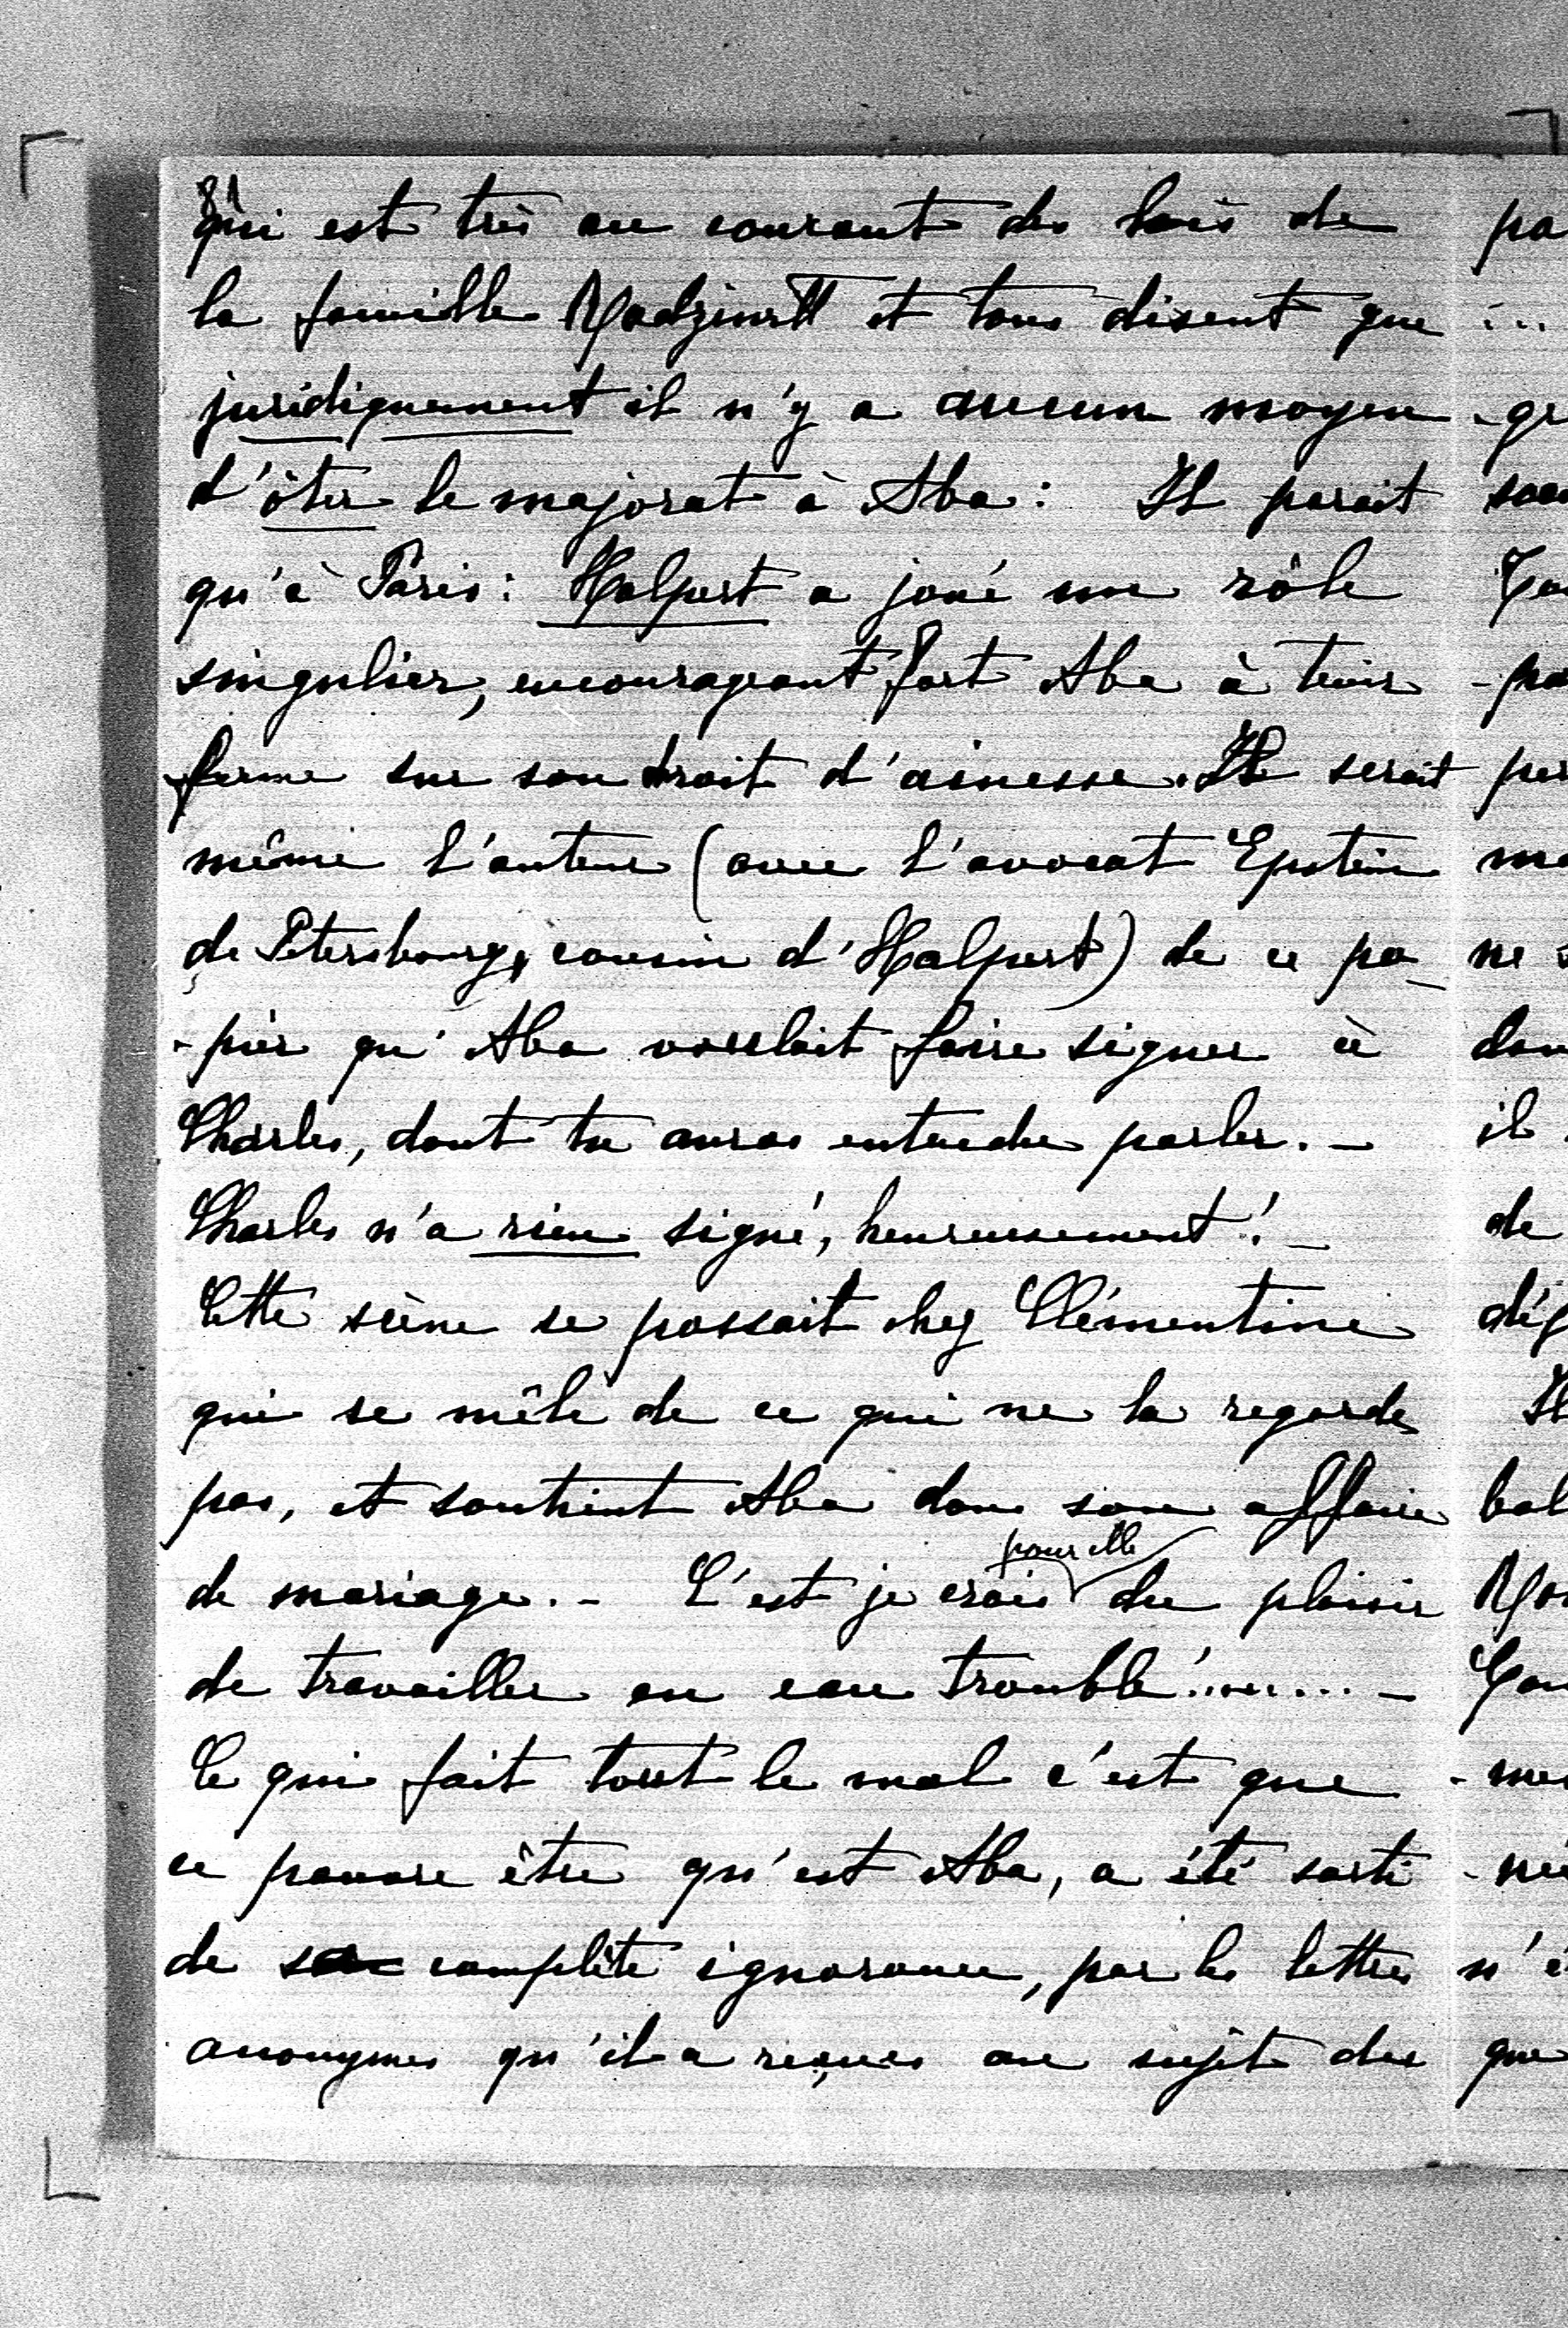 81
qui est très au courant des lois de
la famille Radziwill et tous disent que
juridiquement il n'y a aucun moyen
d'ôter le majorat à Aba : Il parait
qu'à Paris : Halpert a joué un rôle
singulier, encourageant fort Aba à tenir
ferme sur son droit d'ainesse. Il serait
même l'auteur (avec l'avocat Epstein
de Petersbourg, cousin d'Halpert) de ce pa-
-pier qu'Aba voulait faire signer à
Charles, dont tu auras entendu parler. –
Charles n'a rien signé, heureusement ! –
Cette scène se passait chez Clémentine
qui se mêle de ce qui ne la regarde
pas, et soutient Aba dans son affaire
de mariage. – C'est je crois pour elle du plaisir
de travailler en eau trouble !...... –
Ce qui fait tout le mal c'est que
ce pauvre être qu'est Aba, a été sorti
de sa complète ignorance, par les lettres
anonymes qu'il a reçues au sujet des
pa
...
-gr
Il
-pa
per
ne
il
de
-me
n'é
que